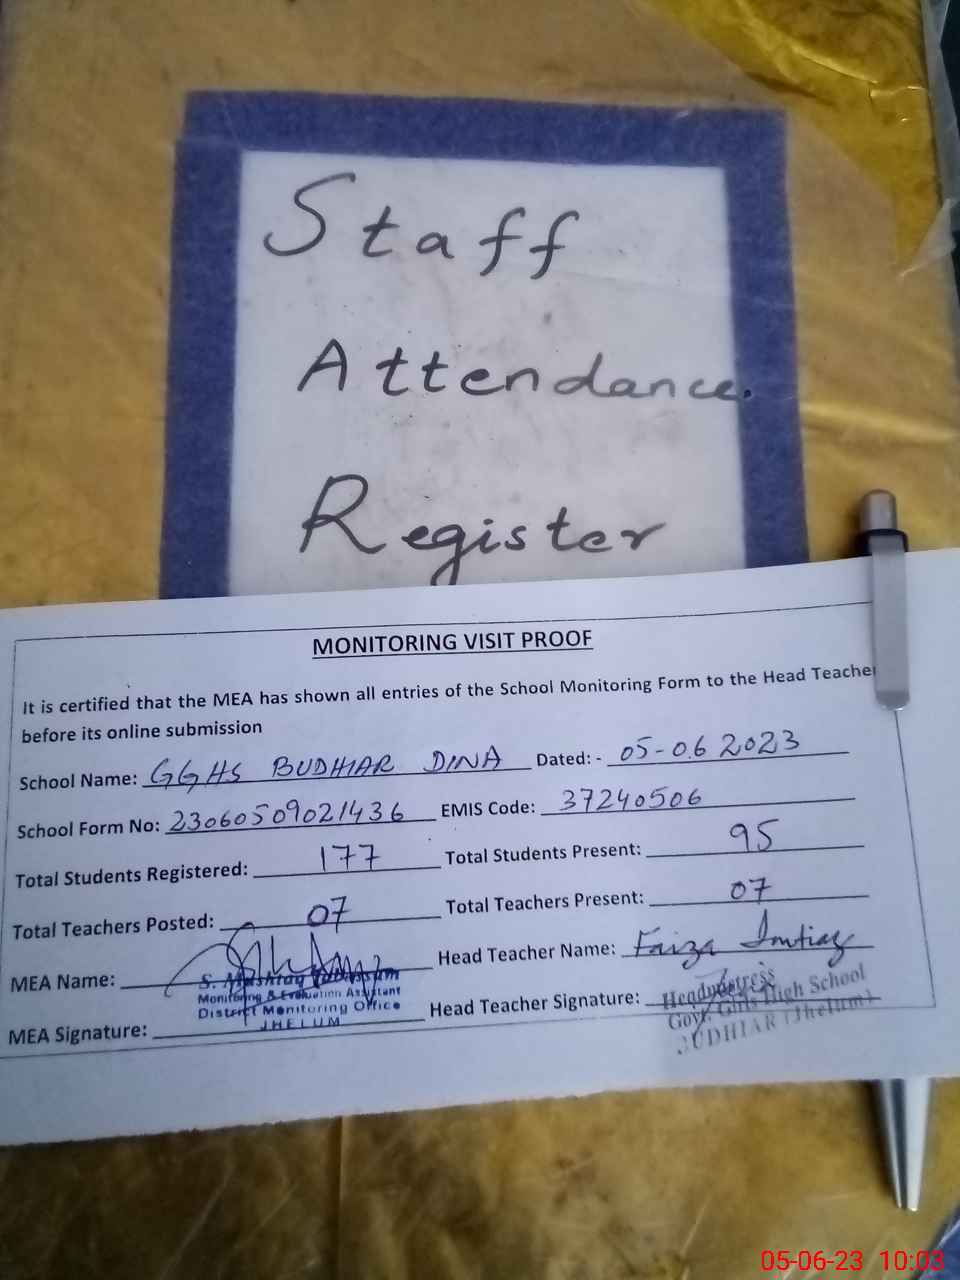 Staff
Attendance.
Register
MONITORING VISIT PROOF
It is certified that the MEA has shown all entries of the School Monitoring Form to the Head Teacher
before its online submission
School Name: GGHS BUDHIAR DINA Dated: - 05-06 2023
School Form No: 23060509021436 EMIS Code: 37240506
Total Students Registered: 177 Total Students Present: 95
Total Teachers Posted: 07 Total Teachers Present: 07
MEA Name: Head Teacher Name: Faiza Imtiaz
S. Mushtaq Tabassum
Monitoring & Evaluation Assistant
District Monitoring Office
JHELUM
MEA Signature: Head Teacher Signature:
Headmistress
Govt. Girls High School
BUDHIAR (Jhelum)
05-06-23 10:03